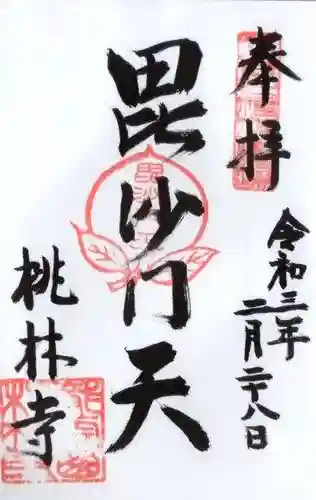 奉拝
令和三年
二月二十八日
毘沙门天
桃林寺